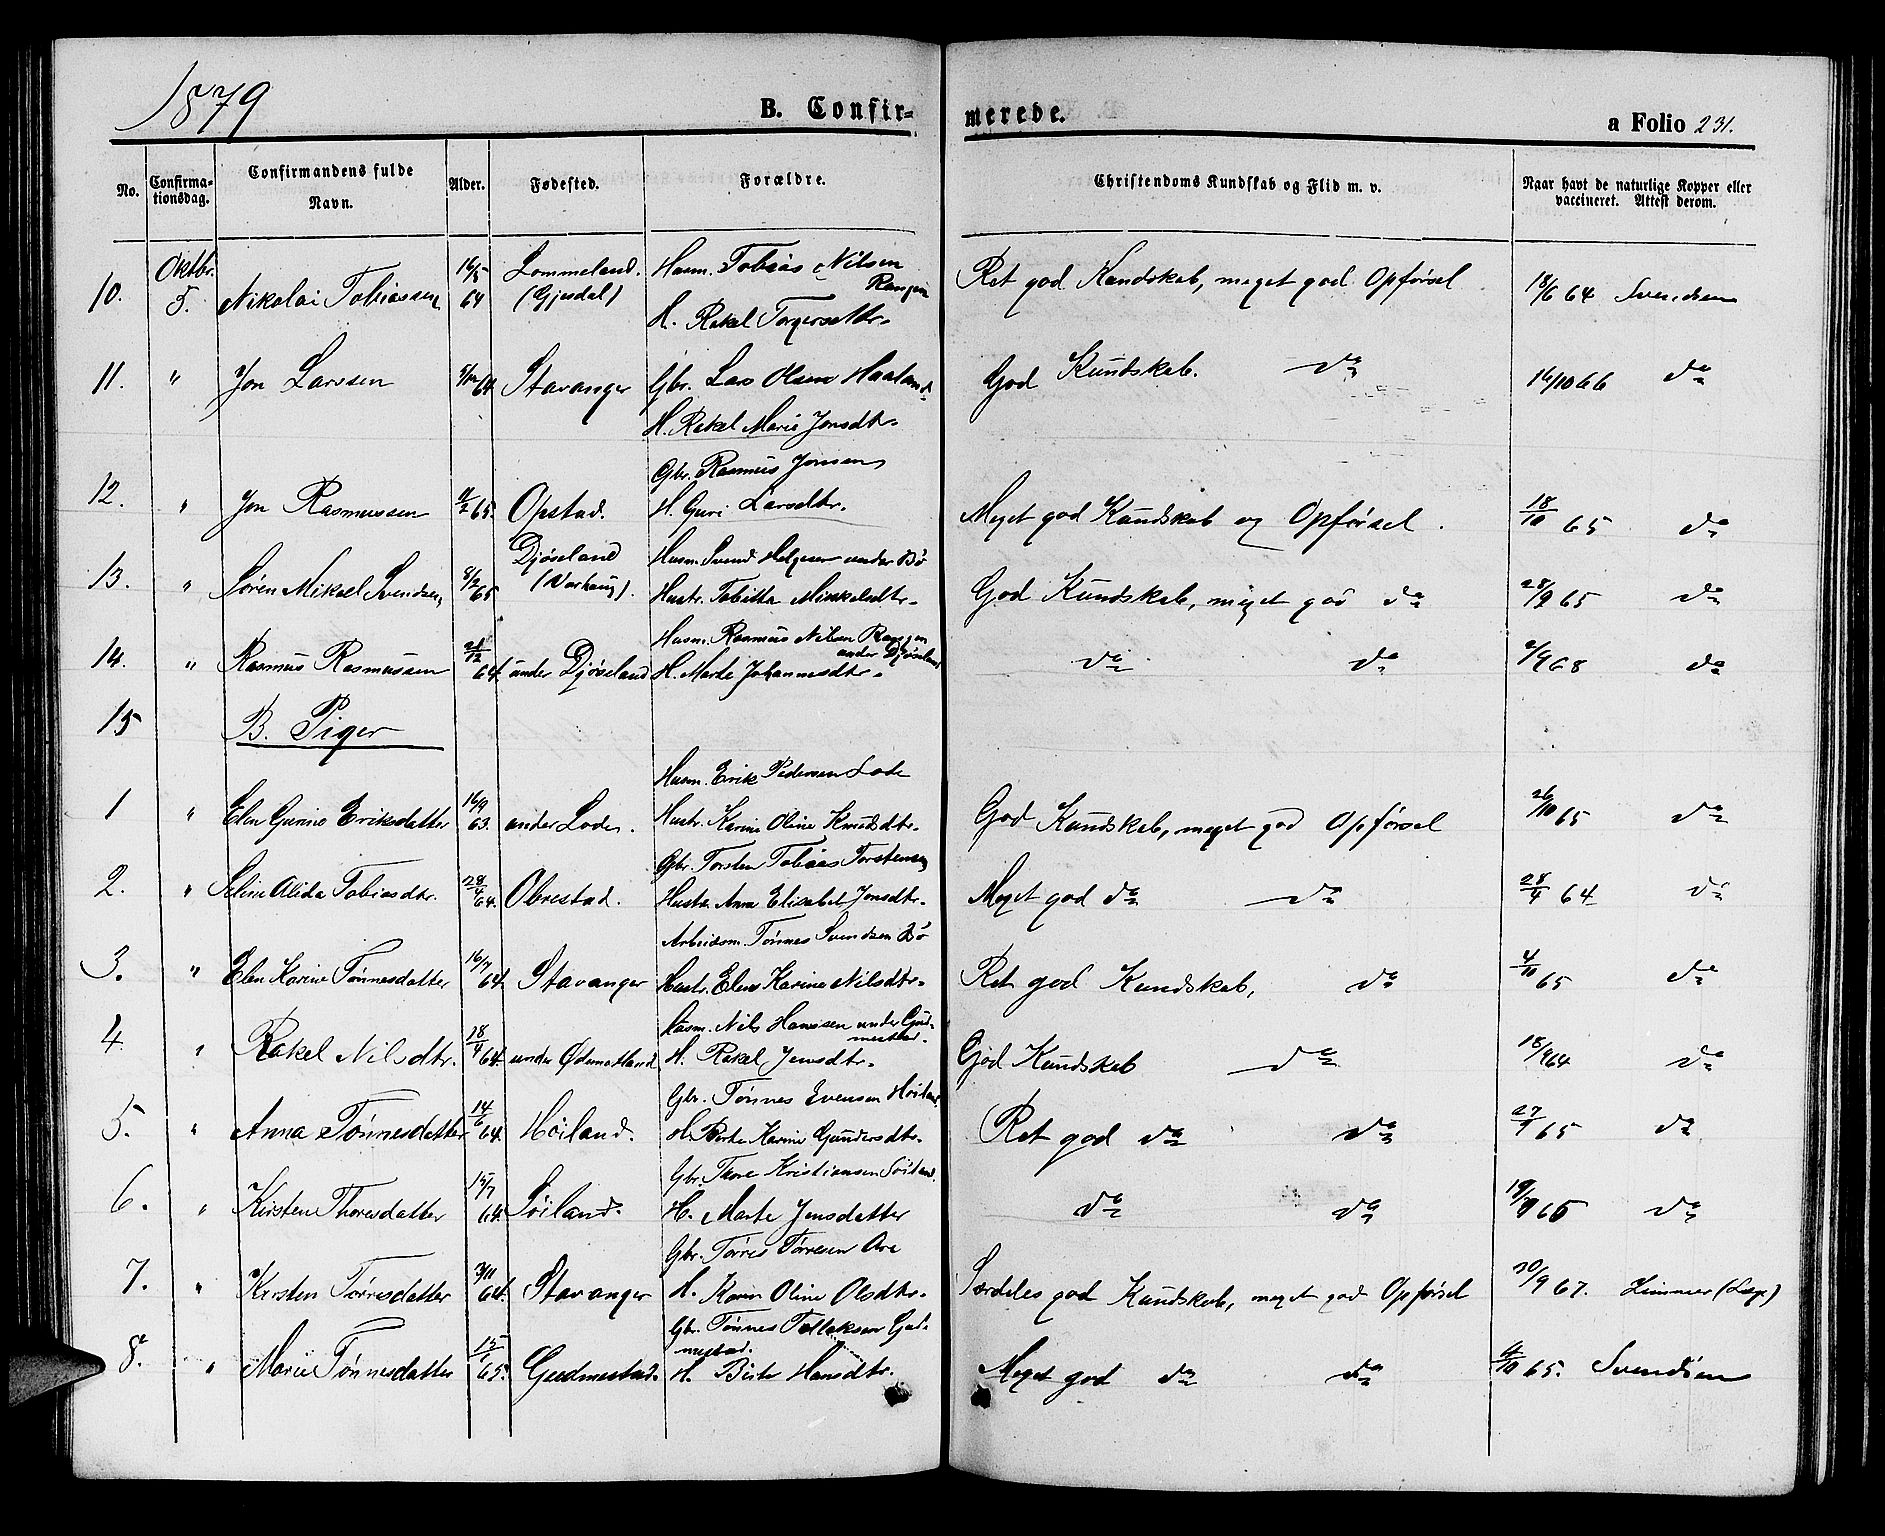 1879
B. Confir-
merede.
a Folio 231.
No.
Confirma-
tionsdag.
Confirmandens fulde
Navn.
Alder.
Fødested.
Forældre.
Christendoms Kundskab og Flid m. v.
Naar havt de naturlige Kopper eller
vaccineret. Attest derom.
Oktbr. 16/5 Lommeland. Husm. Tobias Nilsen
10. 5. Nikolai Tobiassen 64 (Gjesdal) Ret god Kundskab, meget god Opførsel 18/6 64 Svendsen
H. Rakel Torgersdtr.
11. " Jon Larssen 64 Stavanger Gbr. Lars Olsen Haaland God Kundskab. do 16/10 66 do
H. Rakel Marie Jonsdtr.
Gbr. Rasmus Jonsen
12. " Jon Rasmussen 65. Opstad. H. Guri Larsdtr. Meget god Kundskab og Opførsel. 18/10 65 do
Djøseland Husm. Svend Helgesen under Bø
13. " Søren Mikael Svendsen 8/2 65 (Varhaug). Hustr. Tabitta Mikkelsdtr. God Kundskab, meget god do 28/9 65 do
Husm. Rasmus Nilsen
under Djøseland
14. " Rasmus Rasmussen 21/12 64. under Djøseland H. Marte Johannesdtr. do do 2/9 68 do
15 B. Piger
Husm. Erik Pedersen Lode
1 " Elen Gurine Eriksdatter 16/9 63. under Lode. Hustr. Karine Oline Knudsdtr. God Kundskab, meget god Opførsel 26/10 65 do
Gbr. Torsten Tobias Torstensen
2. " Seline Alida Tobiasdtr. 28/4 64. Obrestad. Hustr. Anna Elisabet Jonsdtr. Meget god do do 28/4 64 do
Arbeidsm. Tønnes Svendsen Bø
3. " Elen Karine Tønnesdatter 16/7 64. Stavanger Hustr. Elen Karine Nilsdtr. Ret god Kundskab, do 4/10 65 do
Husm. Nils Hansen under Gud-
mestad.
4. " Rakel Nilsdtr. 64. under Ødemotland H. Rakel Jensdtr. God Kundskab do 64 do
Gbr. Tønnes Evensen Høiland
5. " Anna Tønnesdatter 14/6 64. Høiland. H. Berte Karine Gundersdtr. Ret god do do 65 do
Gbr. Thore Kristiansen Søiland.
6. " Kirsten Thoresdatter 15/7 64. Søiland. H. Marte Jensdatter do do 19/9 65 do
Gbr. Tørres Tørresen Are
7. " Kirsten Tørresdatter 3/11 64. Stavanger H. Karen Oline Olsdtr. Særdeles god Kundskab, meget god Opførsel 30/9 67. Zimmer (Læge)
Gbr. Tønnes Tollaksen Gud-
mestad.
8. " Marie Tønnesdatter 65. Gudmestad. H. Birte Hansdtr. Meget god do do 4/10 65. Svendsen